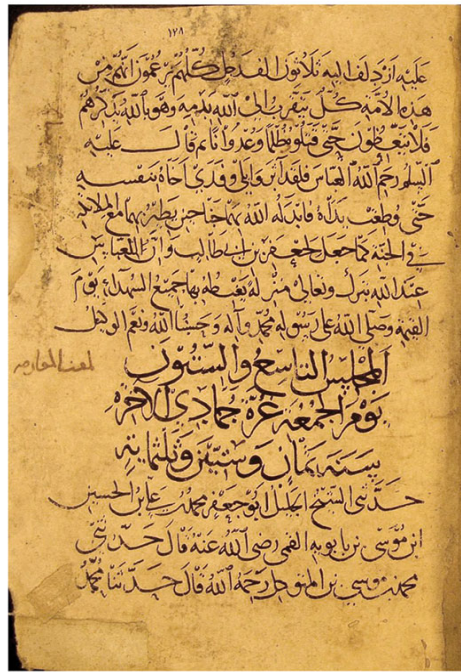 ١٢٨
عليه ازدلف اليه ثلاثون الف رجل كلهم يزعمون انهم من
هذه الامة كل يتقرب الى الله بدمه وهو بالله يذكرهم
فلا يتعظون حتى قتلوه ظلما وعدوانا ثم قال عليه
السلم رحم الله العباس فلقد اثر وابلى وفدى اخاه بنفسه
حتى قطعت يداه فابدله الله بهما جناحين يطير بهما مع الملائكة
في الجنة كما جعل لجعفر بن ابي طالب وان للعباس
عند الله تبرك وتعالى منزلة يغبطه بها جميع الشهداء يوم
القيمة وصلى الله على رسوله محمد وآله وحسبنا الله ونعم الوكيل
المجلس التاسع والستون
يوم الجمعة غرة جمادى الآخرة
سنة ثمان وستين وثلثماية
حدثنى الشيخ الجليل ابو جعفر محمد بن علي بن الحسين
ابن موسى بن بابويه القمى رضى الله عنه قال حدثنى
محمد بن موسى بن المتوكل رحمه الله قال حدثنا محمد